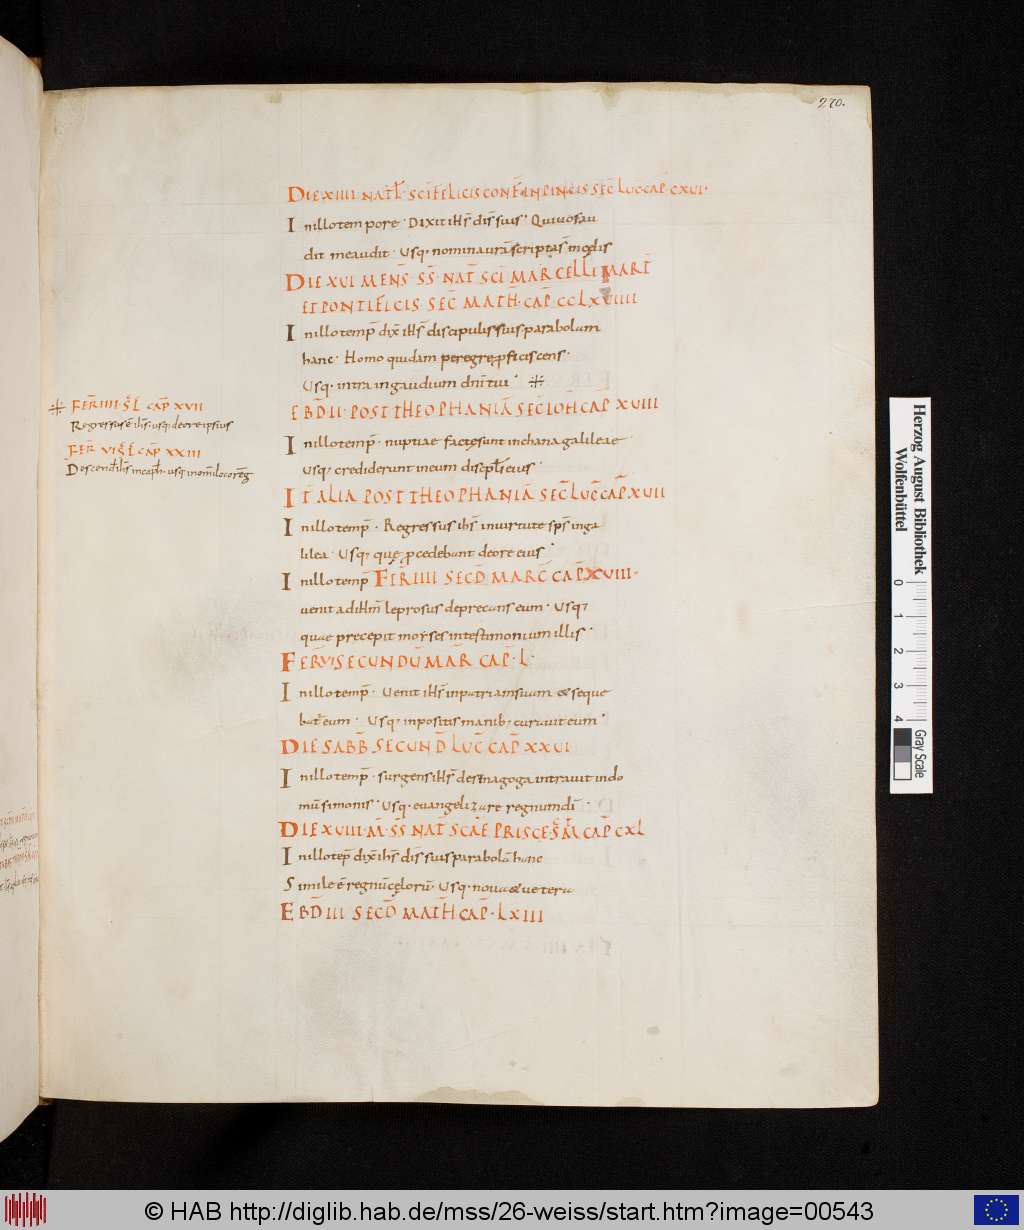 270.
DIE XIIII NAT̄L SC̄I FELICIS CONF̄ IN PINCIS SEC̄ LUC CAP̄ CXVI.
In illo tempore. Dixit ihs̄ dis̄ suis. Qui vos au
dit me audit. Usq. nomina urā scripta s̄ in celis
DIE XVI MENS̄ SS̄ NAT̄ SC̄I MARCELLI MART̄
ET PONTIFICIS. SEC̄ MATH̄. CAP̄ CCLXVIIII
In illo temp̄ dix̄ ihs̄ discipulis suis parabolam
hanc. Homo quidam peregrę p̄ficiscens.
Usq. intra in gaudium dn̄i tui. ⁜
EBD̄ II. POST THEOPHANIĀ SEC̄ IOH̄ CAP̄ XVIII
In illo temp̄. nuptiae factę sunt in chana galileae
Usq; crediderunt in eum discip̄li eius.
IT̄ ALIA POST THEOPHANIĀ SEC̄ LUC̄ CAP̄ XVII
In illo temp̄. Regressus ihs̄ in virtute sps̄ in ga
lilea. Usq; quę p̄cedebant de ore eius.
In illo temp̄ FER̄ IIII SECD̄ MARC̄ CAP̄ XVIII.
venit ad ihm̄ leprosus deprecans eum. Usq;
quae precepit moyses in testimonium illis.
FER̄ VI SECUNDŪ MAR CAP̄. L.
In illo temp̄. Venit ihs̄ in patriam suam & seque
bat̄ eum. Usq; inpositis manib; curavit eum.
DIE SABB̄. SECUND̄ LUC̄ CAP̄ XXVI
In illo temp̄. surgens ihs̄ de sinagoga intravit in do
mū simonis. Usq. evangelizare regnum dī.
DIE XVIII M̄. SS̄ NAT̄ SC̄AE PRISCE. S̄ M̄ CAP̄ CXL
In illo tēp̄ dix̄ ihs̄ dis̄ suis parabolā hanc
Simile ē regnū cęlorū. Usq. nova & vetera
EBD̄ III SECD̄ MATH̄ CAP̄. LXIII
⁜ FER̄ IIII. S̄ L̄ CAP̄ XVII
Regressus ē ihs̄. usq; de ore ipsius
FER̄ VI S̄ L̄ CAP̄ XXIII
Descend̄ ihs̄ in caph̄. usq; in om̄ loco reḡ
Herzog August Bibliothek
Wolfenbüttel
0 1 2 3 4
Gray Scale
© HAB http://diglib.hab.de/mss/26-weiss/start.htm?image=00543